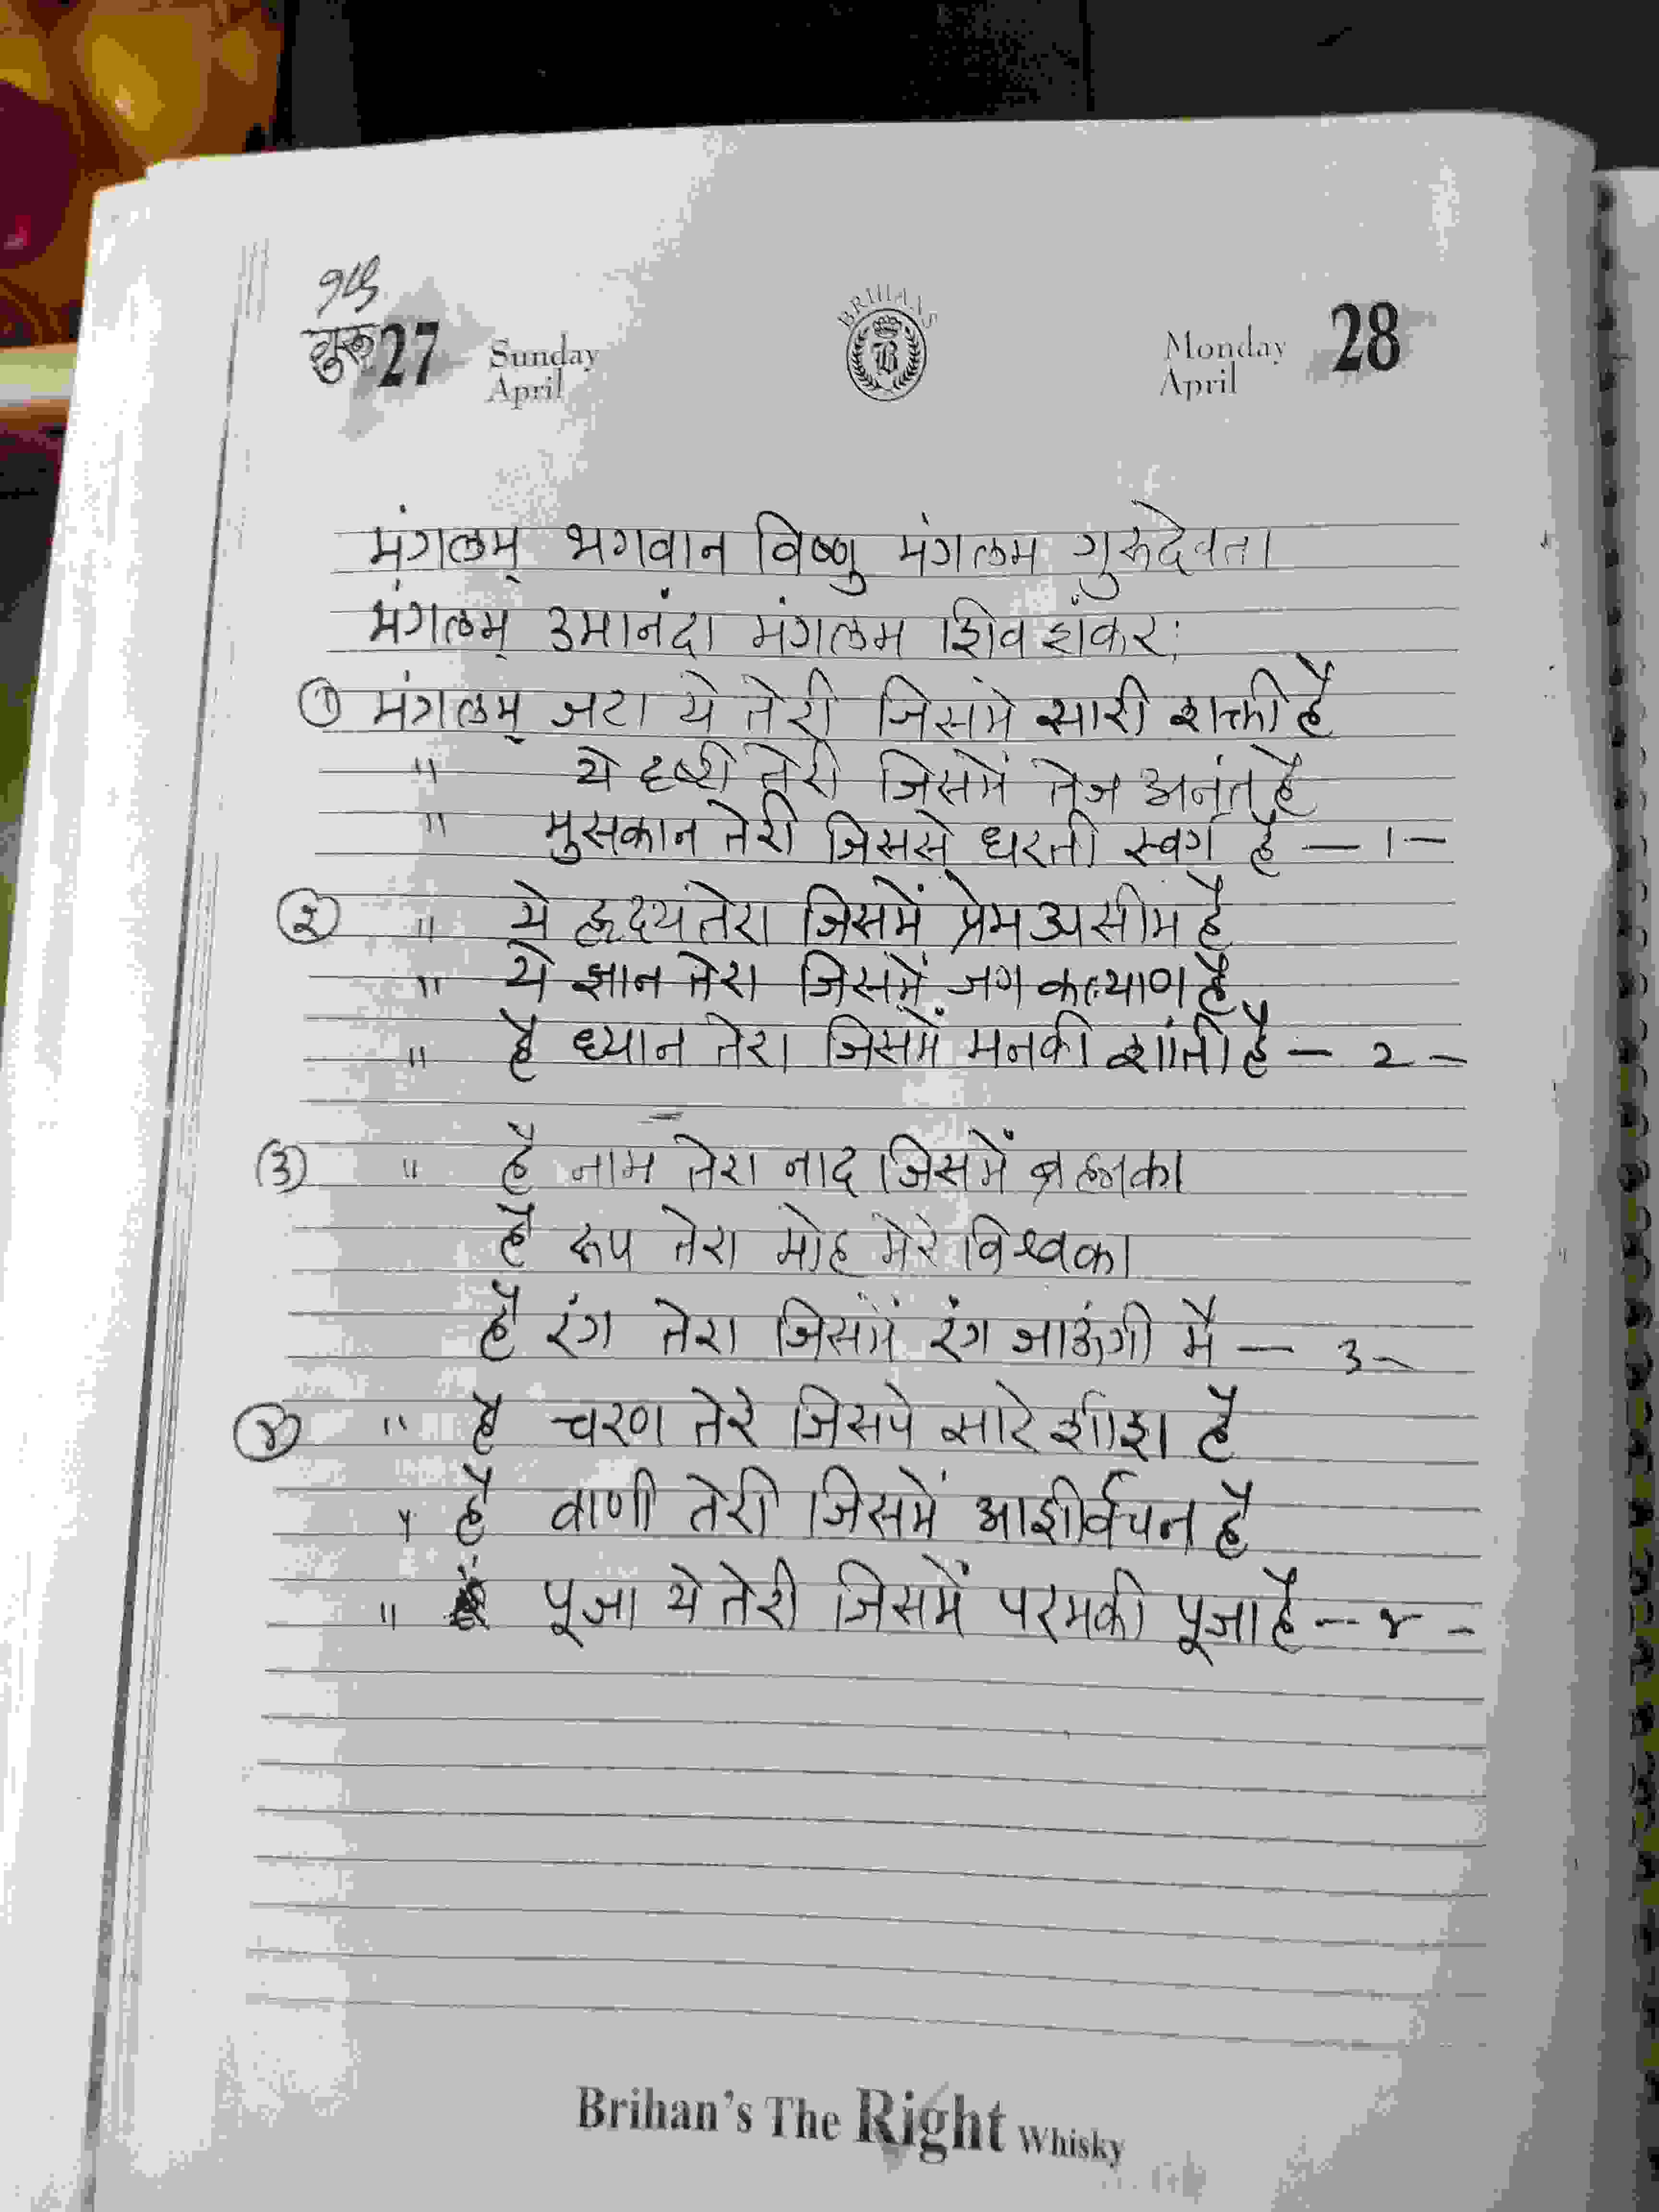 गुरू 27 Sunday April BRIHANS B Monday April 28
मंगलम् भगवान विष्णु मंगलम गुरूदेवता
मंगलम् उमानंदा मंगलम शिवशंकर:
① मंगलम् जटा ये तेरी जिसमे सारी शक्ती है
" ये दृष्टी तेरी जिसमें तेज अनंत है
" मुसकान तेरी जिससे धरती स्वर्ग है — १ —
② " ये हृदय तेरा जिसमें प्रेम असीम है
" ये ज्ञान तेरा जिसमें जग कल्याण है
" है ध्यान तेरा जिसमें मनकी शांती है — २ —
③ " है नाम तेरा नाद जिसमें ब्रह्मका
है रूप तेरा मोह मेरे विश्वका
है रंग तेरा जिसमें रंग जाऊंगी मै — ३ —
④ " है चरण तेरे जिसपे सारे शीश है
" है वाणी तेरी जिसमें आशीर्वचन है
" पूजा ये तेरी जिसमें परमकी पूजा है — ४ —
Brihan's The Right Whisky